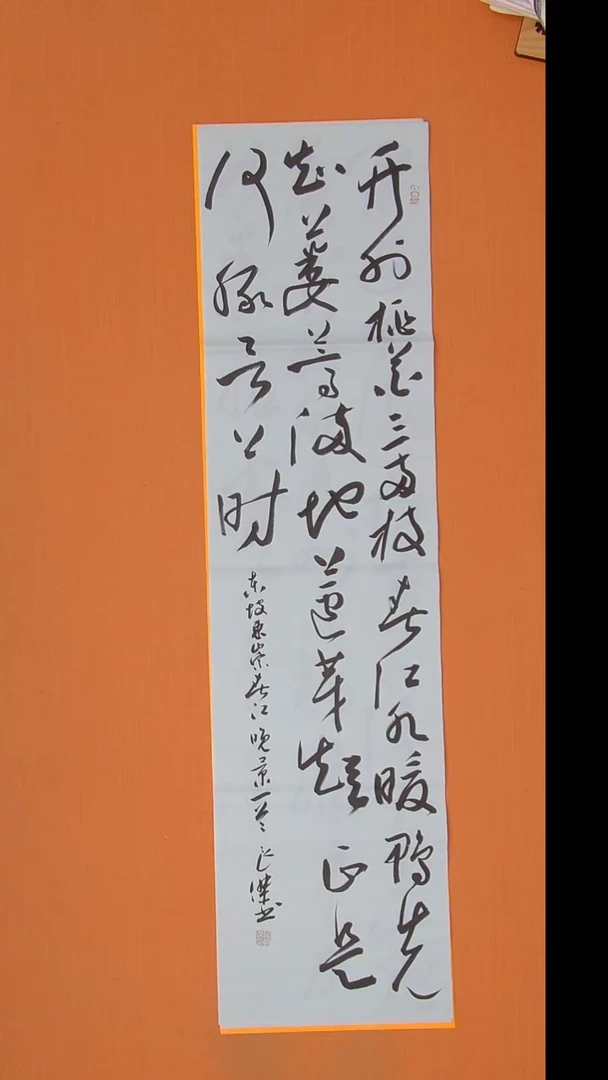 竹外桃花三两枝春江水暖鸭先
知蔞蒿满地芦芽短正是
河豚欲上时
东坡惠崇春江晚景一首 正傑书